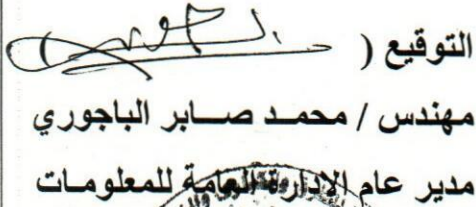 التوقيع (
مهندس / محمـد صـابر الباجوري
مدير عام الإدارة العامة للمعلومـات